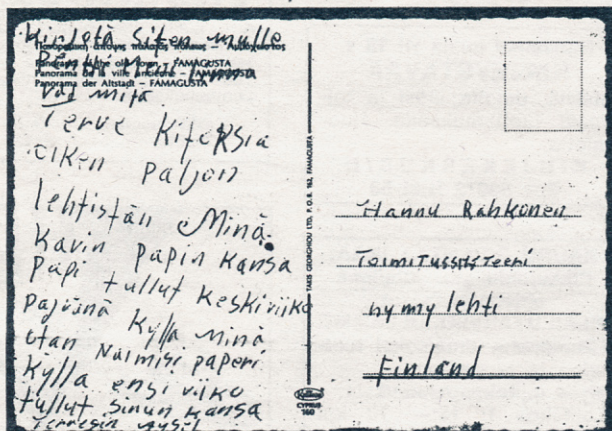 Kirjotä siten mulle
Πανοραμική άποψις παλαιάς πόλεως – Αμμόχωστος
Panorama of the old town – FAMAGUSTA
Panorama de la ville ancienne – FAMAGUSTA
Panorama der Altstadt – FAMAGUSTA
vai mitä
Terve Kitoksia
oiken paljon
lehtistän Minä
Kavin papin Kansa
papi tullut Keskiviiko
pajvänä Kylla Minä
otan Naimisi paperi
Kylla ensi viiko
tullut sinun Kansa
Terveisin Aysel
TAKIS GEORGHIOU LTD, P.O.B. 763, FAMAGUSTA
CYPRUS
160
Hannu Rahkonen
nymy lehti
Finland